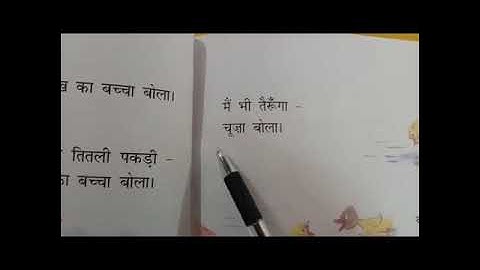 का बच्चा बोला।
तितली पकड़ी –
का बच्चा बोला।
मैं भी तैरूँगा –
चूज़ा बोला।